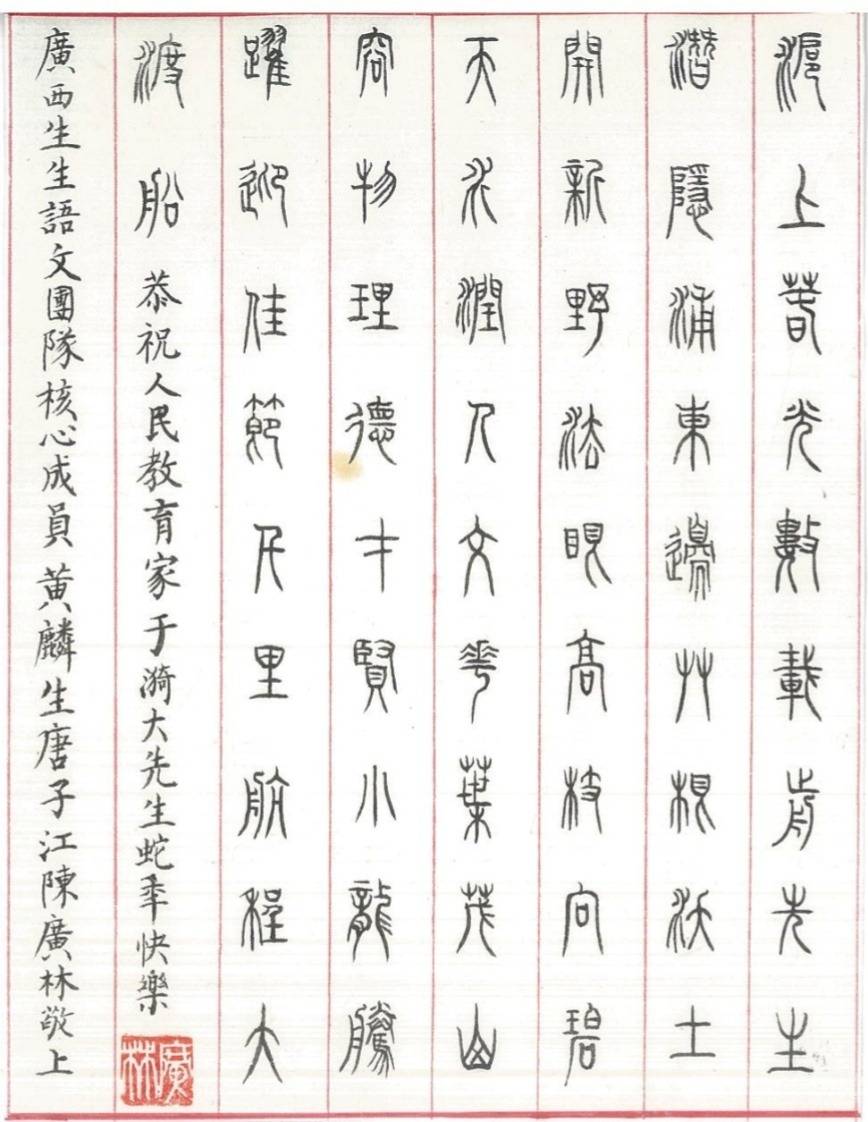 滬上春光數載前先生
潛隱浦東邊艸根沃土
開新野法眼高枝向碧
天水潤人文華葉茂山
容物理德才賢小龍騰
躍迎佳節千里航程大
渡船 恭祝人民教育家于漪大先生蛇年快樂
廣西生生語文團隊核心成員 黃麟生唐子江陳廣林敬上
廣林